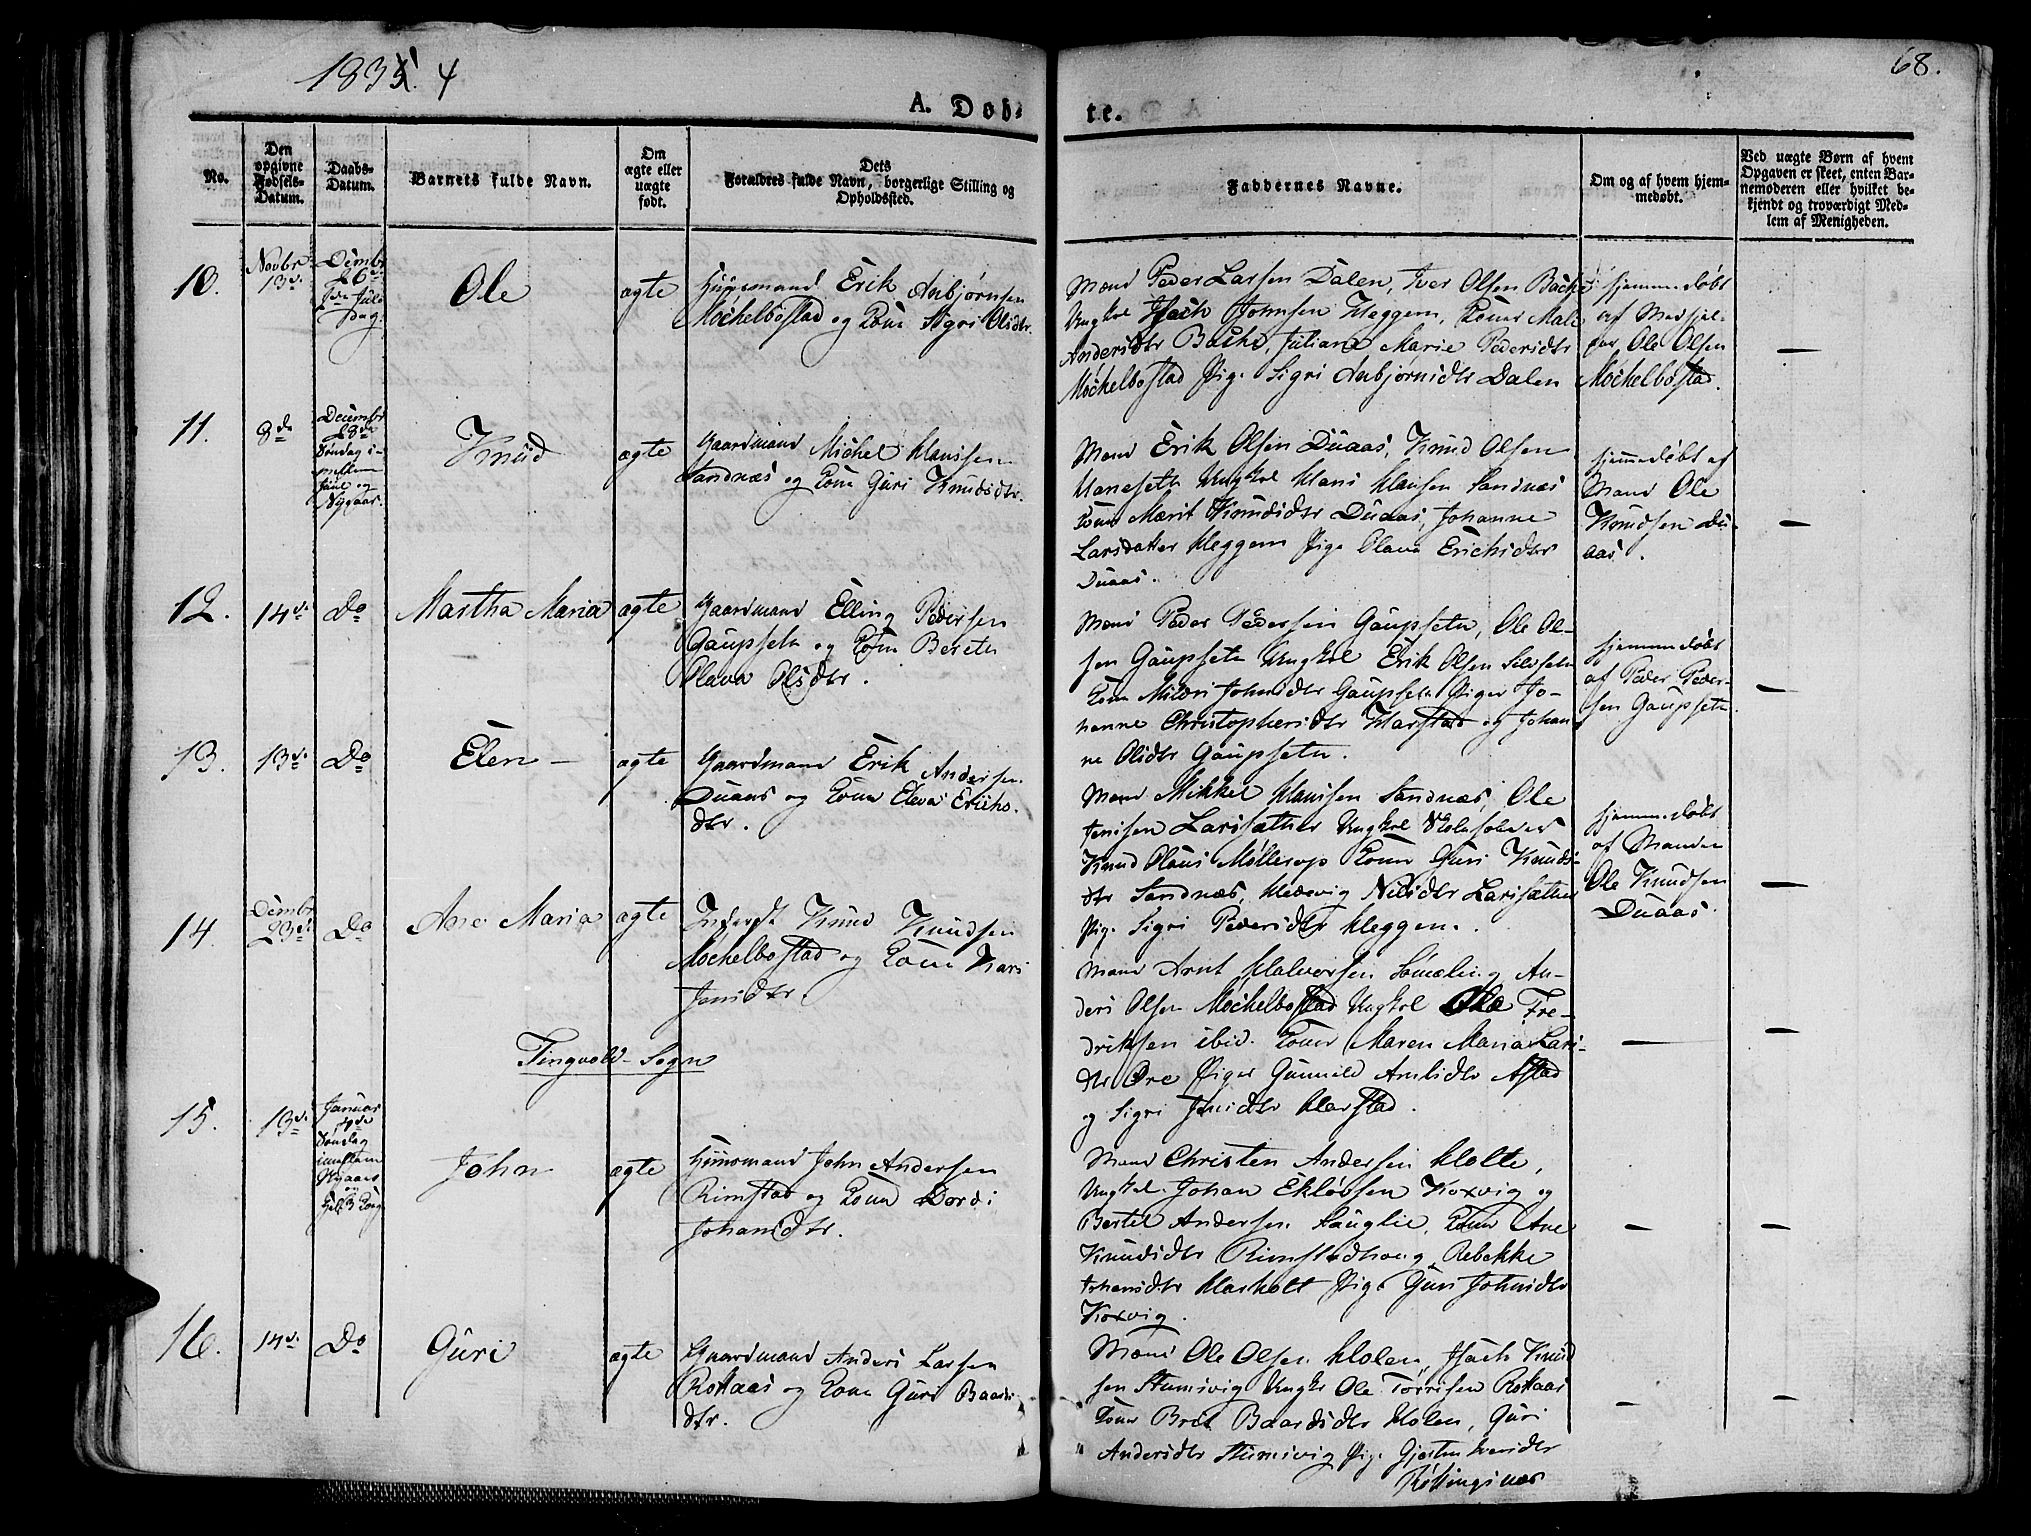 1835. 4
68.
A. Døb-
te.
No.
Den opgivne Fødsels-Datum.
Daabs-Datum.
Barnets fulde Navn.
Om ægte eller uægte født.
Dets Forældres fulde Navn, borgerlige Stilling og Opholdssted.
Faddernes Navne.
Om og af hvem hjem-medøbt.
Ved uægte Børn af hvem Opgaven er skeet, enten Bar-nemoderen eller hvilket be-kjendt og troværdigt Med-lem af Menigheden.
10.
Novbr 13de
26de
Ole
ægte
Huusmand Erik Anbjørnsen
Mochelbostad og Kone Sigri Olsdtr.
Mænd Peder Larsen Dalen, Iver Olsen Bache
Ungkl Isach Johnsen Heggem, Koner Mali
Andersdtr Bache, Juliane Marie Pedersdtr
Mochelbostad Pige Sigri Anbjørnsdtr Dalen
hjemmedøbt
af
Ole Olsen
Mochelbostad.
11.
8de
Decembr
28de
Søndag i-
mellem
Juul og
Nyaar.
Knud
ægte
Gaardmand Michel Hanssen
Sandnæs og Kone Guri Knudsdtr.
Mænd Erik Olsen Duaas, Knud Olsen
Ungkl Hans Hansen Sandnæs
Koner Marit Knudsdtr Duaas, Johanne
Larsdatter Heggem Pige Olava Erichsdtr
Duaas.
hjemmedøbt af
Mand Ole
Knudsen Du-
aas.
12.
14de
Do
Martha Maria
ægte
Gaardmand Elling Pedersen
Gaupseth og Kone Bereth
Olava Olsdtr.
Mænd Peder Pedersen Gaupseth, Ole Ol-
sen Gaupseth Ungkl Erik Olsen
Kone Johnsdtr Gaupseth Piger Jo-
hanne Christophersdtr Harstad og Johan-
ne Olsdtr Gaupseth.
hjemmedøbt
af Peder Peder-
sen Gaupseth
13.
13de
Do
Elen -
ægte
Gaardmand Erik Andersen
Duaas og Kone Eleva Erichs-
dtr.
Mænd Mikkel Hanssen Sandnæs, Ole
Jensen Larsæther Ungkl
Knud Olaus Møllerop Koner Guri Knuds-
dtr Sandnæs, Hedevig Nilsdtr Larsæther
Pige Sigri Pedersdtr Heggem.
hjemmedøbt
af Manden
Ole Knudsen
Duaas.
14.
23de
Do
Ane Maria
ægte
Inderst Knud Knudsen
Mochelbostad og Kone Kari
Jensdtr.
Mænd Arnt Halvorsen An-
ders Olsen Mochelbostad Ungkl Ole Fre-
driksen ibid. Koner Maren Maria Lars-
dtr Øre Piger Gunnild Arnsdtr Astad
og Sigri Jensdtr Harstad.
Tingvold Sogn
15.
13de
Januar
Søndag
imellem
Nyaar
og
Hel. 3 Kong
John
ægte
Huusmand John Andersen
Rimstad og Kone Dordi
Johansdtr.
Mænd Christen Andersen Holte,
Ungkl. Johan Ekløvsen Koxvig og
Bertel Andersen Sauglie, Koner Ane
Knudsdtr Rimstadhoug, Rebekke
Johansdtr Harholt Pige Guri Johnsdtr
Koxvig.
16.
14de
Do
Guri
ægte
Gaardmand Anders Larsen
Rokaas og Kone Guri Baards-
dtr.
Mænd Ole Olsen Holen, Isach Knud-
sen Stumsvig Ungkl Ole Torrisen Rokaas
Koner Brit Baardsdtr Holen, Guri
Andersdtr Stumsvig Pige Gjertru Iversdtr